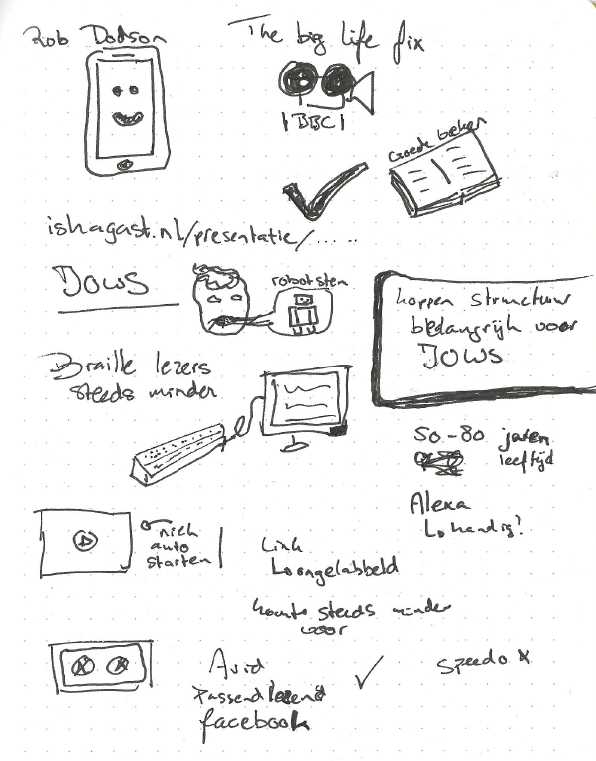 Rob Dodson
The big life fix
BBC
Goede boeken
ishagast.nl/presentatie/.....
JOWS
robot stem
koppen structuur
belangrijk voor
JOWS
Braille lezers
steeds minder
50-80 jaren
leeftijd
Alexa
handig?
niet
auto
starten
Link
ongelabbeld
komt steeds minder
voor
Avid
Passend lezend
facebook
Speedo x